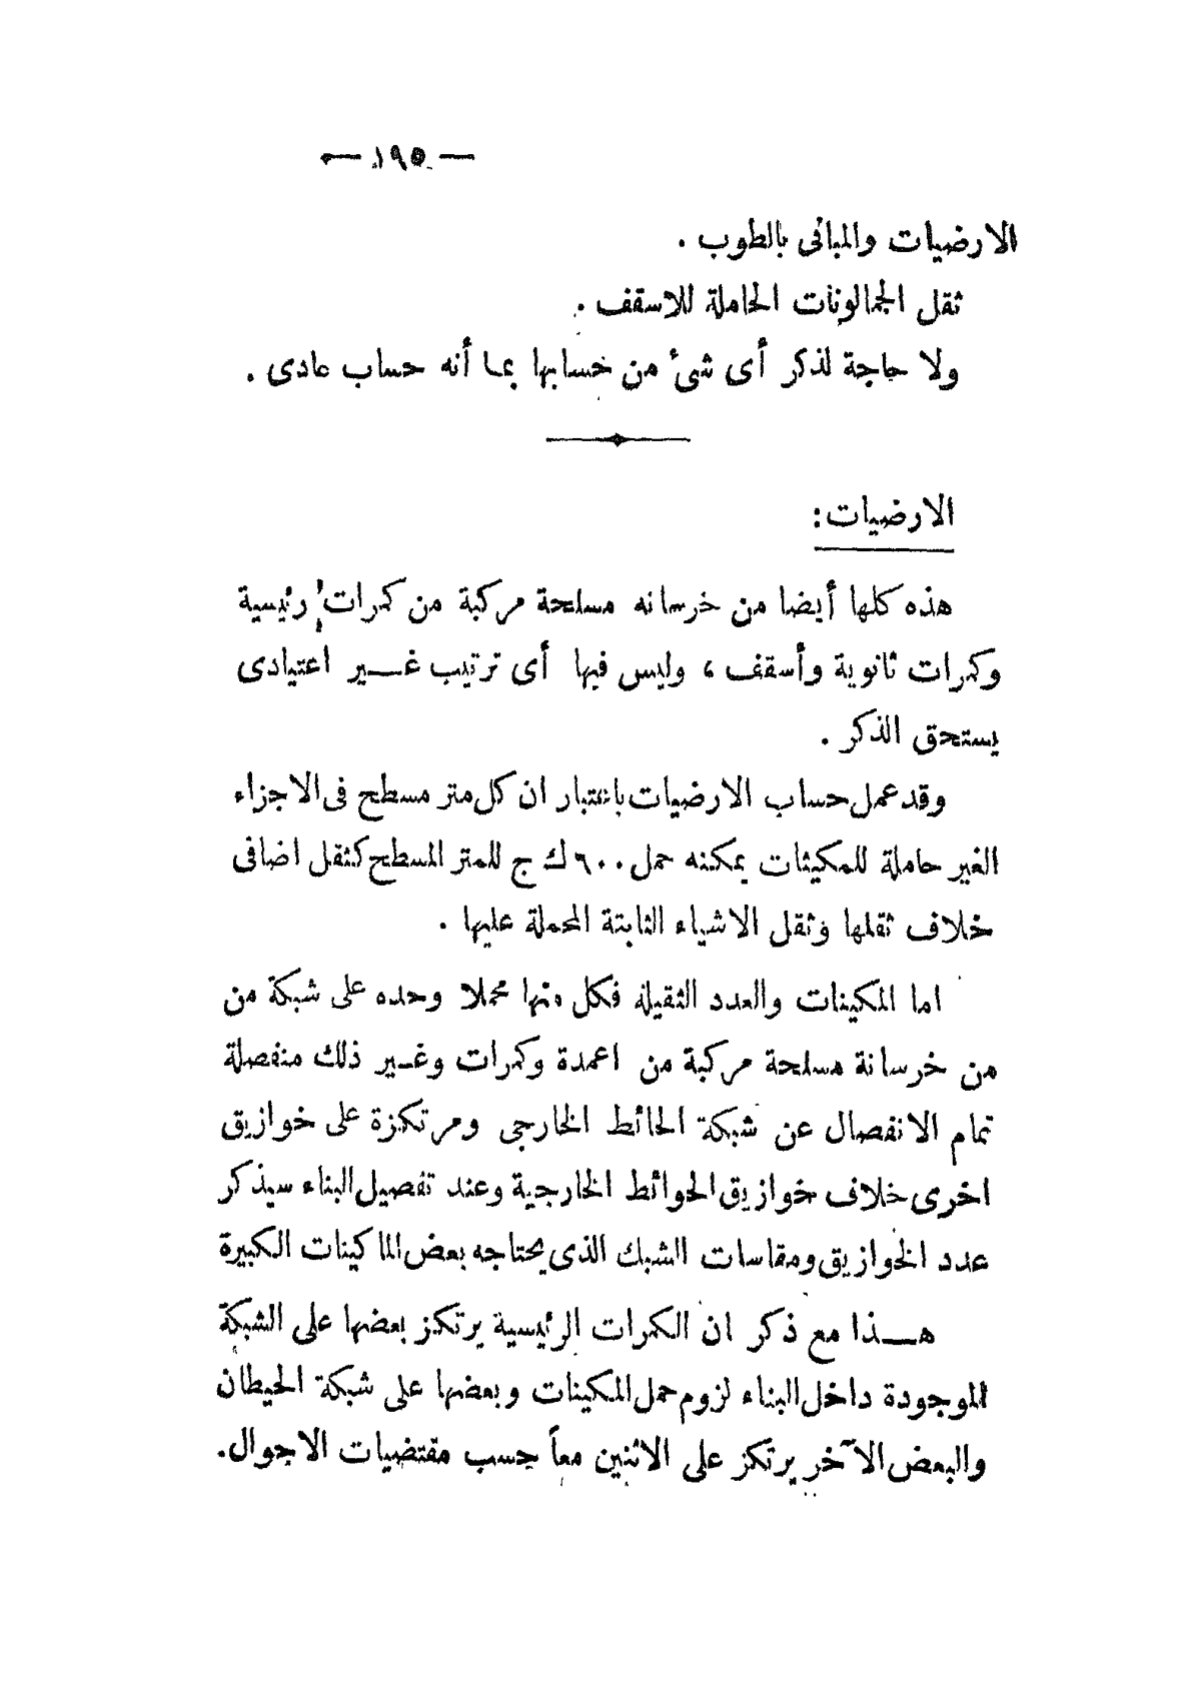 — ١٩٥ —
الارضيات والمبانى بالطوب .
ثقل الجمالونات الحاملة للاسقف .
ولا حاجة لذكر أى شئ من حسابها بما أنه حساب عادى .
الارضيات:
هذه كلها أيضا من خرسانه مسلحة مركبة من كمرات رئيسية
وكمرات ثانوية وأسقف ، وليس فيها أى ترتيب غـــير اعتيادى
يستحق الذكر .
وقد عمل حساب الارضيات باعتبار ان كل متر مسطح فى الاجزاء
الغير حاملة للمكينات يمكنه حمل ٦٠٠ ك ج للمتر المسطح كثقل اضافى
خلاف ثقلها وثقل الاشياء الثابتة المحملة عليها .
اما المكينات والعدد الثقيلة فكل منها محملا وحده على شبكة من
من خرسانة مسلحة مركبة من اعمدة وكمرات وغـير ذلك منفصلة
تمام الانفصال عن شبكة الحائط الخارجى ومرتكزة على خوازيق
اخرى خلاف خوازيق الحوائط الخارجية وعند تفصيل البناء سيذكر
عدد الخوازيق ومقاسات الشبك الذى يحتاجه بعض الماكينات الكبيرة
هـــذا مع ذكر ان الكمرات الرئيسية يرتكز بعضها على الشبكة
الموجودة داخل البناء لزوم حمل المكينات وبعضها على شبكة الحيطان
والبعض الآخر يرتكز على الاثنين معاً حسب مقتضيات الاحوال.